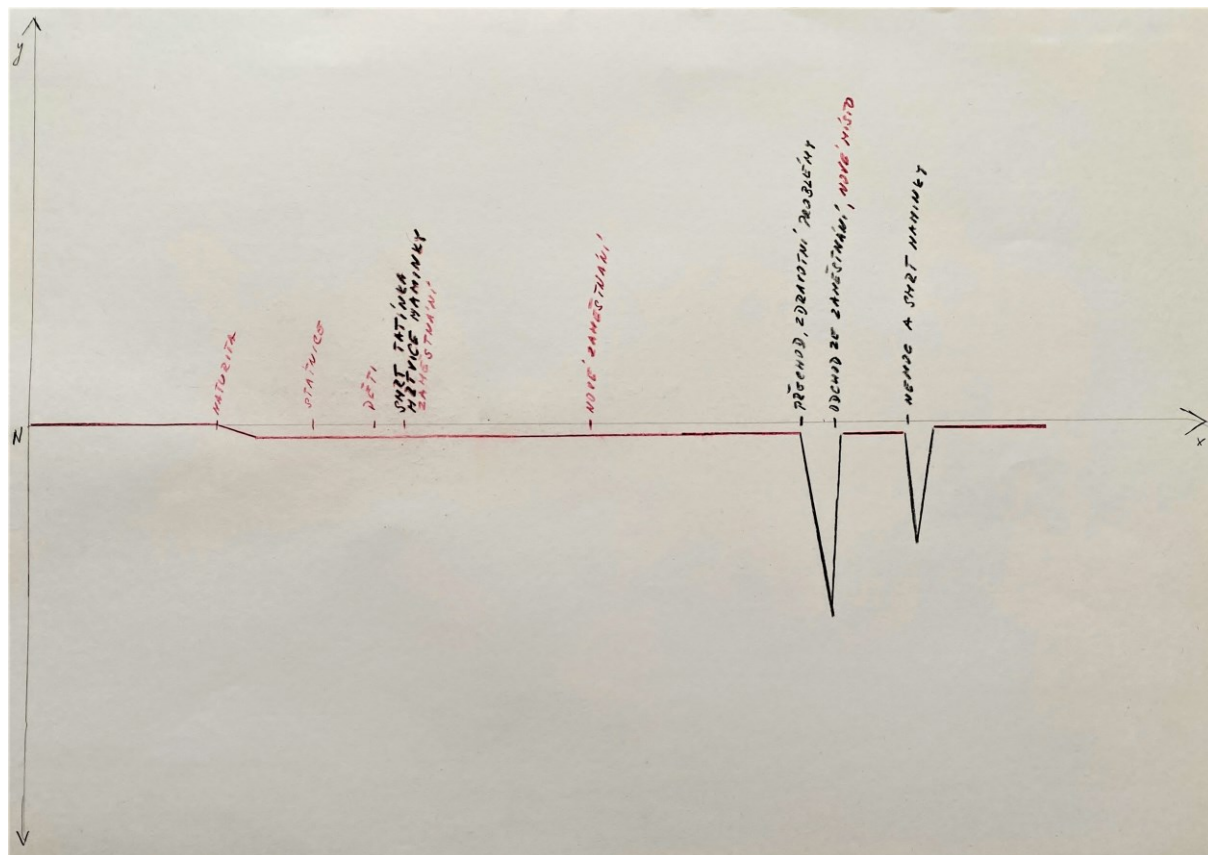 y
MATURITA
STÁTNICE
DĚTI
SMRT TATÍNKA
MRTVICE MAMINKY
ZAMĚSTNÁNÍ
NOVÉ ZAMĚSTNÁNÍ
PŘECHOD, ZDRAVOTNÍ PROBLÉMY
ODCHOD ZE ZAMĚSTNÁNÍ, NOVÉ MÍSTO
NEMOC A SMRT MAMINKY
N
x